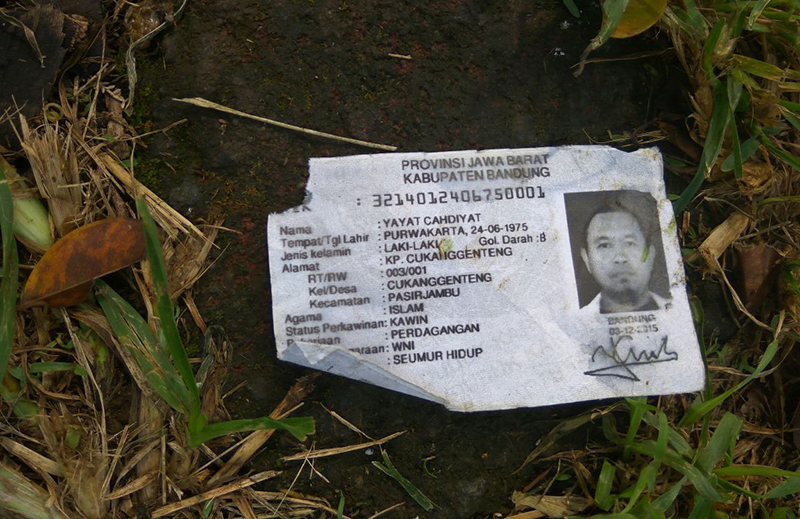 PROVINSI JAWA BARAT
KABUPATEN BANDUNG
: 3214012406750001
Nama : YAYAT CAHDIYAT
Tempat/Tgl Lahir : PURWAKARTA, 24-06-1975
Jenis kelamin : LAKI-LAKI Gol. Darah :B
Alamat : KP. CUKANGGENTENG
RT/RW : 003/001
Kel/Desa : CUKANGGENTENG
Kecamatan : PASIRJAMBU
Agama : ISLAM
Status Perkawinan: KAWIN
: PERDAGANGAN
: WNI
: SEUMUR HIDUP
BANDUNG
03-12-2015